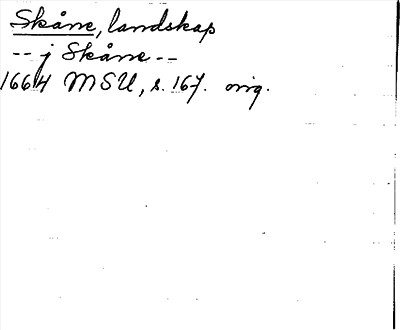 Skåne, landskap
-- j Skåne --
1664 MSU, s. 167. orig.